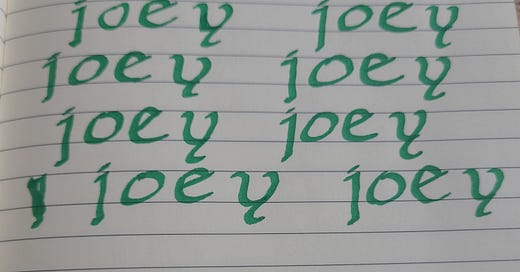 joey joey
joey joey
joey joey
joey joey